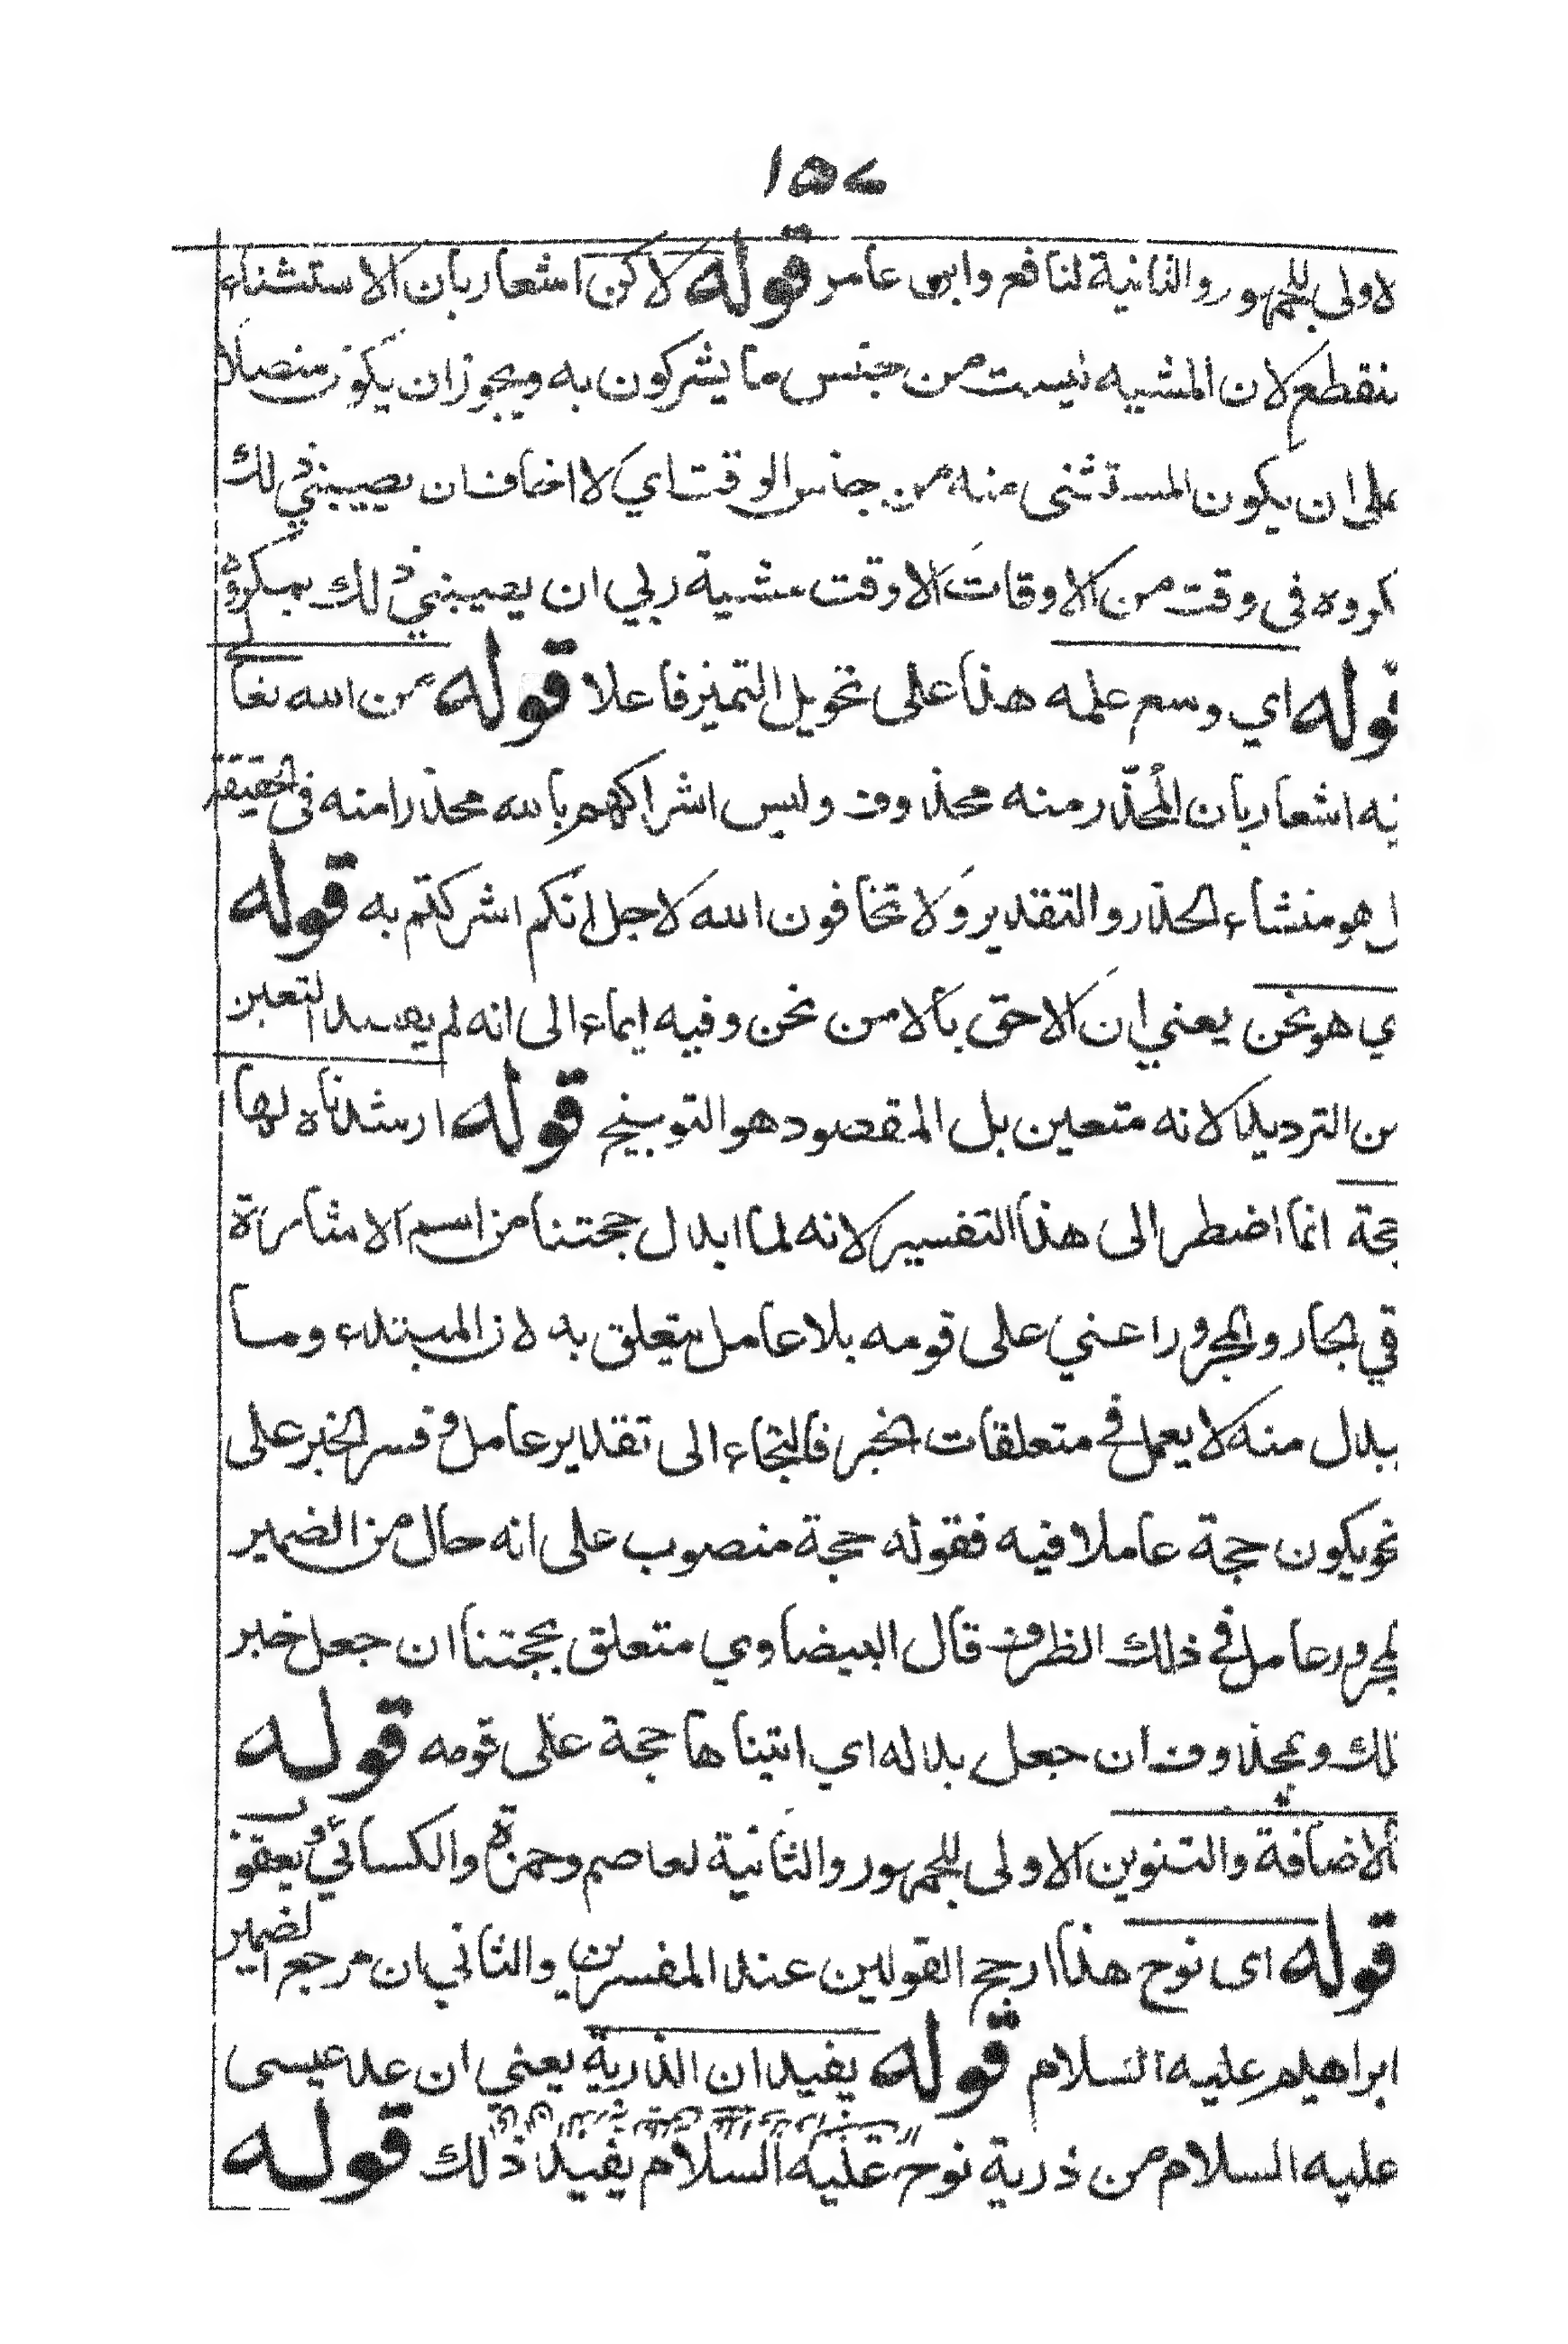 ١٥٧
لاولى للجمهور والثانية لنافع وابى عامر قوله لاكن اشعار بان الاستثناء
منقطع لان المشيه ليست من جنس ما يشركون به ويجوز ان يكون متصلا
على ان يكون المستثنى منه من جنس الوقت اي لا اخاف ان يصيبني ذلك
كروه فى وقت من الاوقات الا وقت مشية ربي ان يصيبني ذلك بمكروه
قوله اي وسع علمه هذا على تحويل التميز فاعلا قوله من الله تعا
يه اشعار بان المحذّر منه محذوف وليس اشراكهم بالله محذرا منه فى الحقيقة
ل هو منشاء الحذر والتقدير ولا تخافون الله لاجل انكم اشركتم به قوله
ي هو نحن يعني ان الاحق بالامن نحن وفيه ايماء الى انه لم يقصد التعين
من الترديد لانه متعين بل المقصود هو التوبيخ قوله ارشدناه لها
حجة انما اضطر الى هذا التفسير لانه لما ابدل حجتنا من اسم الاشارة
قي الجار والمجرور اعني على قومه بلا عامل يتعلق به لان المبتداء وما
بدل منه لا يعمل في متعلقات الخبر فالتجاء الى تقدير عامل وفسر الخبر على
نحو يكون حجة عاملا فيه فقوله حجة منصوب على انه حال من الضمير
لمجرور عامل في ذلك الظرف قال البيضاوي متعلق بحجتنا ان جعل خبر
تلك وبمحذوف ان جعل بدله اي اتيناها حجة على قومه قوله
بالاضافة والتنوين الاولى للجمهور والثانية لعاصم وحمزة والكسائي ويعقوب
قوله اى نوح هذا ارجح القولين عند المفسرين والثاني ان مرجع الضمير
ابراهيم عليه السلام قوله يفيد ان الذرية يعني ان عد عيسى
عليه السلام من ذرية نوح عليه السلام يفيد ذلك قوله